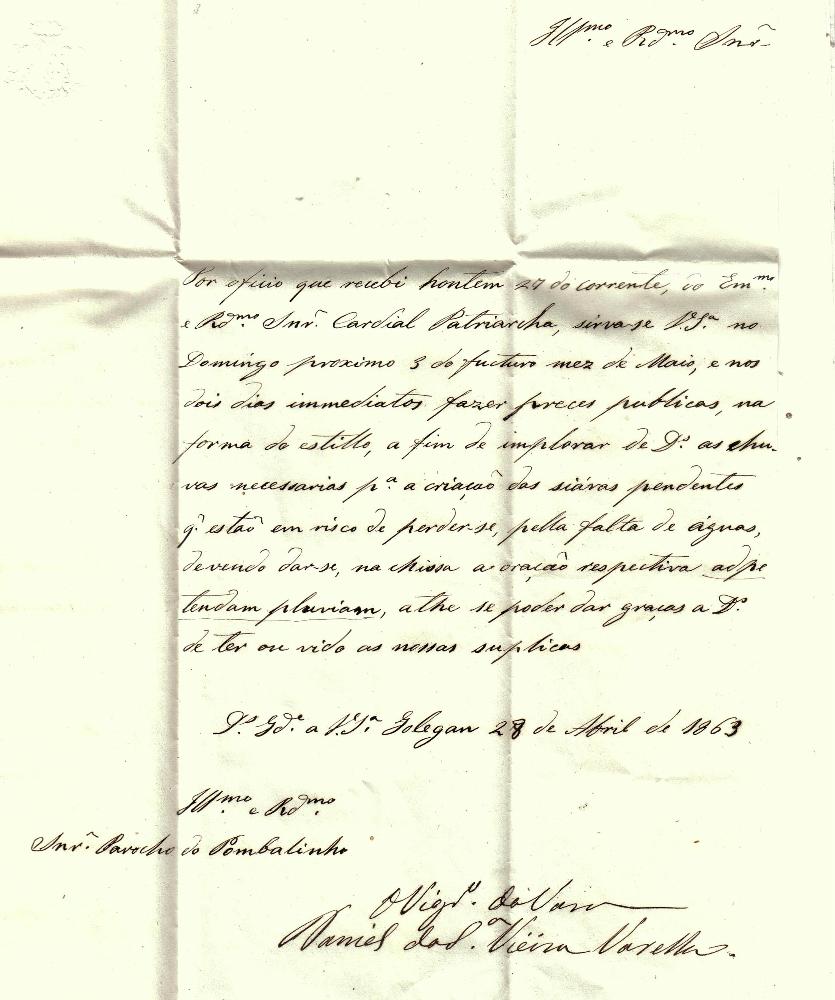 Ill.mo e Rd.mo Snr.
Por oficio que recebi hontem 27 do corrente, do Em.mo
e Rd.mo Snr. Cardial Patriarcha, sirva-se V.S.a no
Domingo proximo 3 do futuro mez de Maio, e nos
dois dias immediatos fazer preces publicas, na
forma do estillo, a fim de implorar de D.s as chu-
vas necessarias p.a a criação das siáras pendentes
q. estaõ em risco de perder-se, pella falta de águas,
devendo dar-se, na Missa a oração respectiva adpe
tendam pluviam, athe se poder dar graças a D.s
de ter ou vido as nossas suplicas
D.s Gd.e a V.S.a Golegan 28 de Abril de 1863
Ill.mo e Rd.mo
Snr. Parocho do Pombalinho
O Vigr.o da Vara
Daniel da S.a Vieira Varella